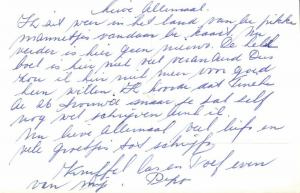 Lieve Allemaal.
Ik zit weer in het land van de
mannetjes vandaar de kaart. Nu
verder is hier geen nieuws. De
boel is hier niet veel veranderd Dus
zou ik hier niet meer voor goed
heen willen. Ik hoorde dat
zal zelf
nog wel schrijven vind ik.
Nu lieve allemaal veel liefs en
vele groetjes tot schrijfs
Knuffel en even
van mij.